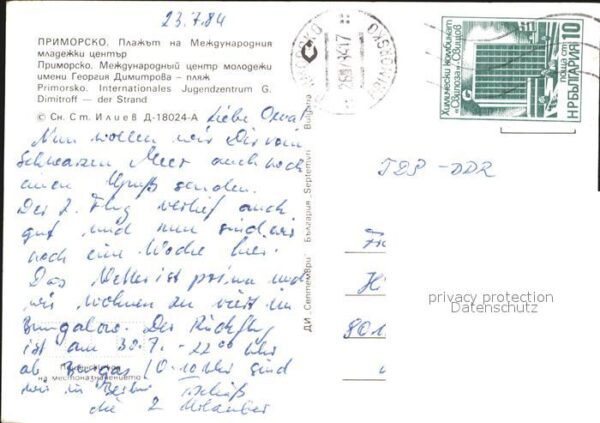 23.7.84
ПРИМОРСКО. Плажът на Международния
младежки център
Приморско. Международный центр молодежи
имени Георгия Димитрова – пляж
Primorsko. Internationales Jugendzentrum G.
Dimitroff — der Strand
© Сн. Ст. Илиев Д-18024-А
Liebe
Nun wollen wir Dir vom
Schwarzen Meer auch noch
einen Gruß senden.
Der 2. Flug verlief auch
gut und nun sind wir
noch eine Woche hier.
Das Wetter ist prima und
wir wohnen zu viert im
Bungalow. Der Rückflug
ist am 30.7. - 22.00 Uhr
ab Burgas, Uhr sind
wir in Berlin
die 2 Urlauber
на местоназначението
ДИ „Септември“ България „Septemvri“ Bulgaria
ПРИМОРСКО
PRIMORSKO
Химически комбинат
„Свилоза“ – Свищов
НР БЪЛГАРИЯ
поща ст. 10
DDR
801
privacy protection
Datenschutz